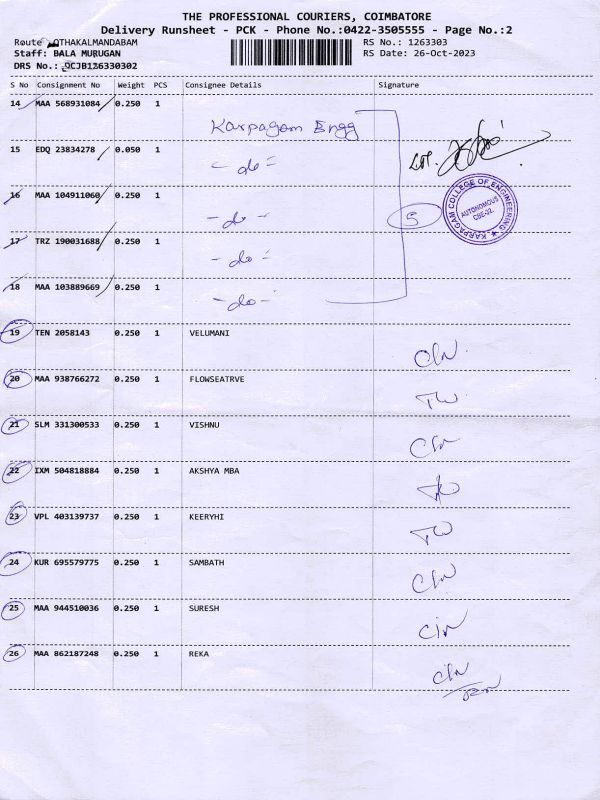 THE PROFESSIONAL COURIERS, COIMBATORE
Delivery Runsheet - PCK - Phone No.:0422-3505555 - Page No.:2
Route OTHAKALMANDABAM RS No.: 1263303
Staff: BALA MURUGAN RS Date: 26-Oct-2023
DRS No.: OCJB126330302
S No Consignment No Weight PCS Consignee Details Signature
14 MAA 568931084 0.250 1
Karpagam Engg
15 EDQ 23834278 0.050 1
- do =
16 MAA 104911060 0.250 1
- do -
17 TRZ 190031688 0.250 1
- do =
18 MAA 103889669 0.250 1
- do -
5
KARPAGAM COLLEGE OF ENGINEERING
AUTONOMOUS
19 TEN 2058143 0.250 1 VELUMANI
20 MAA 938766272 0.250 1 FLOWSEATRVE
21 SLM 331300533 0.250 1 VISHNU
22 IXM 504818884 0.250 1 AKSHYA MBA
23 VPL 403139737 0.250 1 KEERYHI
24 KUR 695579775 0.250 1 SAMBATH
25 MAA 944510036 0.250 1 SURESH
26 MAA 862187248 0.250 1 REKA